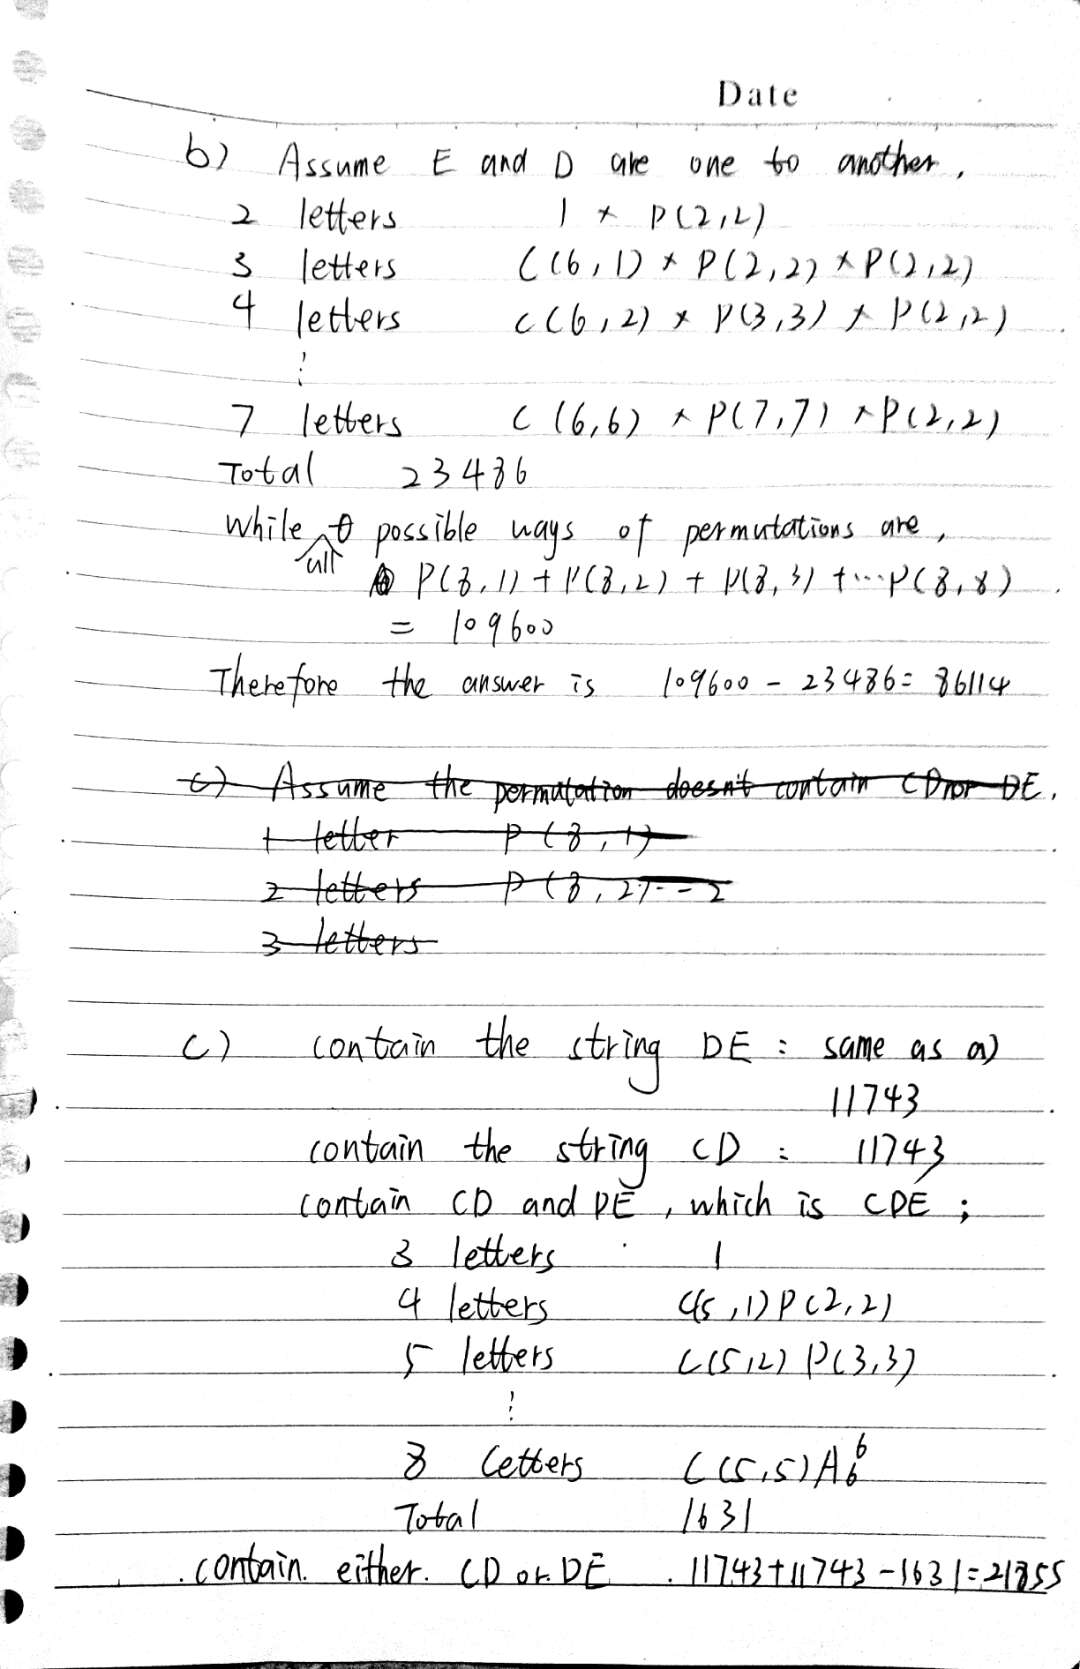 Date
b) Assume E and D are one to another,
2 letters 1 × P(2,2)
3 letters C(6,1) × P(2,2) × P(2,2)
4 letters C(6,2) × P(3,3) × P(2,2)
⋮
7 letters C(6,6) × P(7,7) × P(2,2)
Total 23486
While all possible ways of permutations are,
P(8,1) + P(8,2) + P(8,3) + ... P(8,8)
= 109600
Therefore the answer is 109600 - 23486 = 86114
c) Assume the permutation doesn't contain CD or DE.
1 letter P(8,1)
2 letters P(8,2) - 2
3 letters
c) contain the string DE : same as a)
11743
contain the string CD : 11743
contain CD and DE, which is CDE ;
3 letters 1
4 letters C(5,1) P(2,2)
5 letters C(5,2) P(3,3)
⋮
8 letters C(5,5) A₆⁶
Total 1631
contain either CD or DE 11743+11743-1631=21855